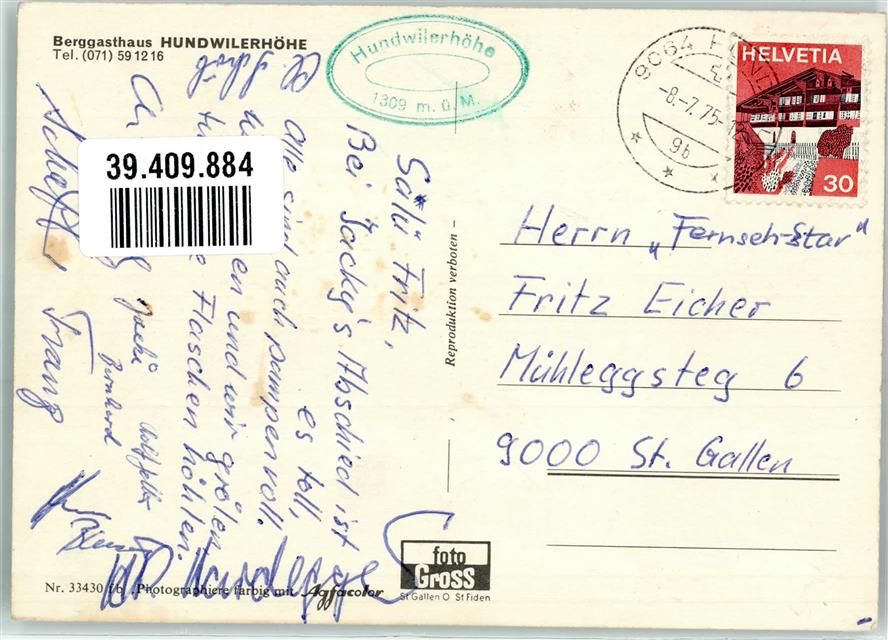 Berggasthaus HUNDWILERHÖHE
Tel. (071) 59 12 16
Hundwilerhöhe
1309 m. ü. M.
9064 H
-8.-7.75-
9b
HELVETIA
30
39.409.884
Salü Fritz,
Bei Jacky's Abschied ist
es toll,
Alle sind auch pumpenvoll.
en und wir grölen
e Flaschen höhlen.
Franz
Bernhard
Reproduktion verboten –
Herrn „Fernseh-Star"
Fritz Eicher
Mühleggsteg 6
9000 St. Gallen
foto
Gross
St Gallen O St Fiden
Nr. 33430 fb Photographiere farbig mit Agfacolor